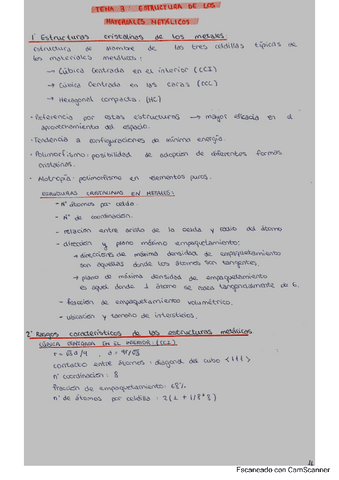 TEMA 3: ESTRUCTURA DE LOS
MATERIALES METÁLICOS
1. Estructuras cristalinas de los metales:
Estructura de nombre de las tres celdillas típicas de
los materiales metálicos:
→ Cúbica Centrada en el interior (CCI)
→ Cúbica Centrada en las caras (CCC)
→ Hexagonal compacta (HC)
· Preferencia por estas estructuras → mayor eficacia en el
aprovechamiento del espacio.
· Tendencia a configuraciones de mínima energía.
· Polimorfismo: posibilidad de adopción de diferentes formas
cristalinas.
· Alotropía: polimorfismo en elementos puros.
ESTRUCTURAS CRISTALINAS EN METALES:
- Nº átomos por celda.
- Nº de coordinación.
- relación entre arista de la celda y radio del átomo
- dirección y plano máximo empaquetamiento:
→ direcciones de máxima densidad de empaquetamiento
son aquellas donde los átomos son tangentes.
→ plano de máxima densidad de empaquetamiento
es aquel donde 1 átomo se rodea tangencialmente de 6.
- fracción de empaquetamiento volumétrico.
- ubicación y tamaño de intersticios.
2. Rasgos característicos de las estructuras metálicas
CÚBICA CENTRADA EN EL INTERIOR (CCI)
r = √3a/4, a = 4r/√3
contacto entre átomos: diagonal del cubo <111>
nº coordinación: 8
fracción de empaquetamiento: 68%
nº de átomos por celdilla: 2 (1 + 1/8*8)
Escaneado con CamScanner